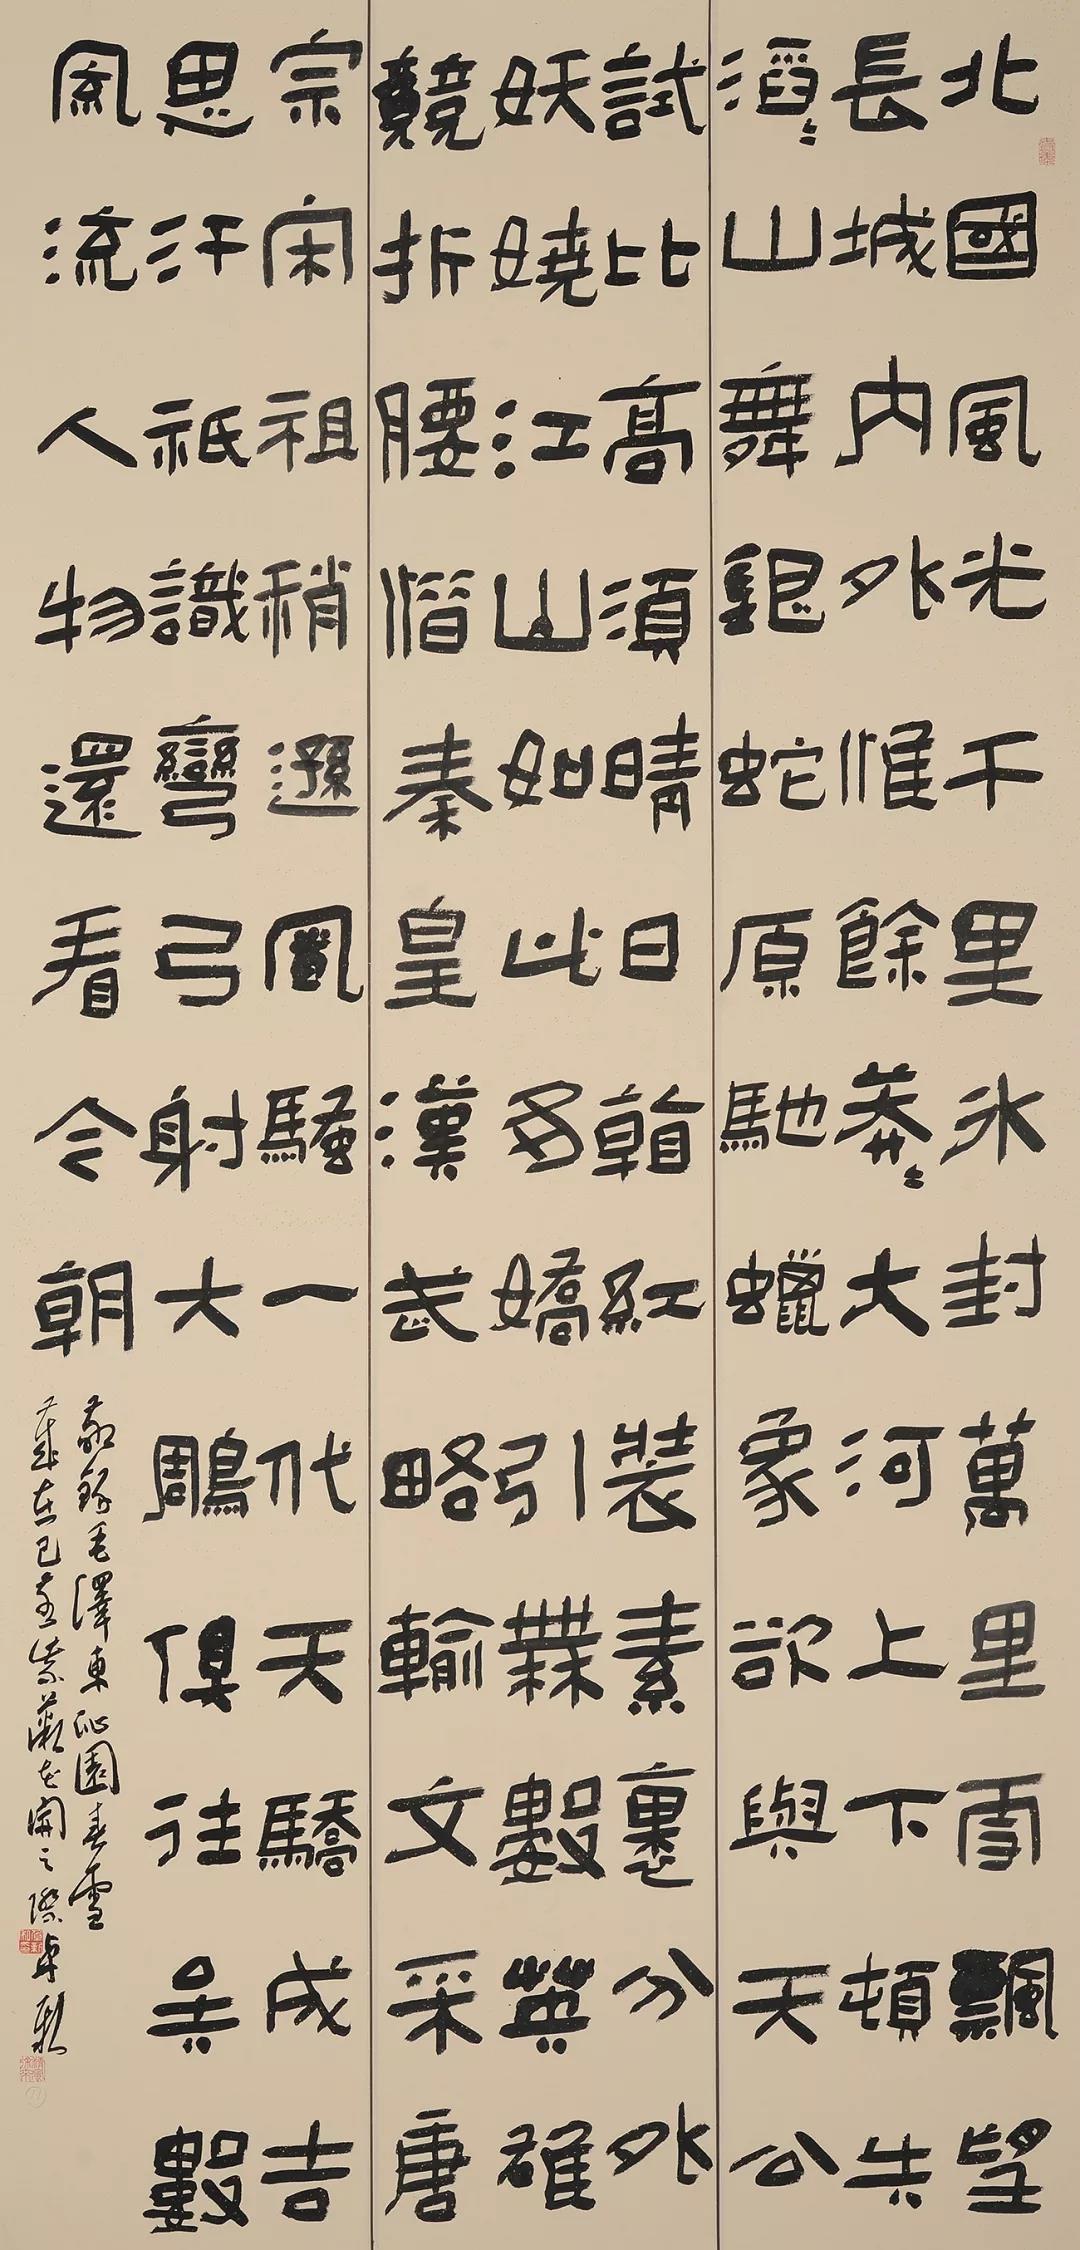 北國風光千里冰封萬里雪飄望
長城內外惟餘莽々大河上下頓失
滔々山舞銀蛇原馳蠟象欲與天公
試比高須晴日看紅裝素裹分外
妖嬈江山如此多嬌引無數英雄
競折腰惜秦皇漢武略輸文采唐
宗宋祖稍遜風騷一代天驕成吉
思汗祇識彎弓射大鵰俱往矣數
風流人物還看今朝
敬錄毛澤東沁園春雪
歲在己亥紫薇花開之際卓